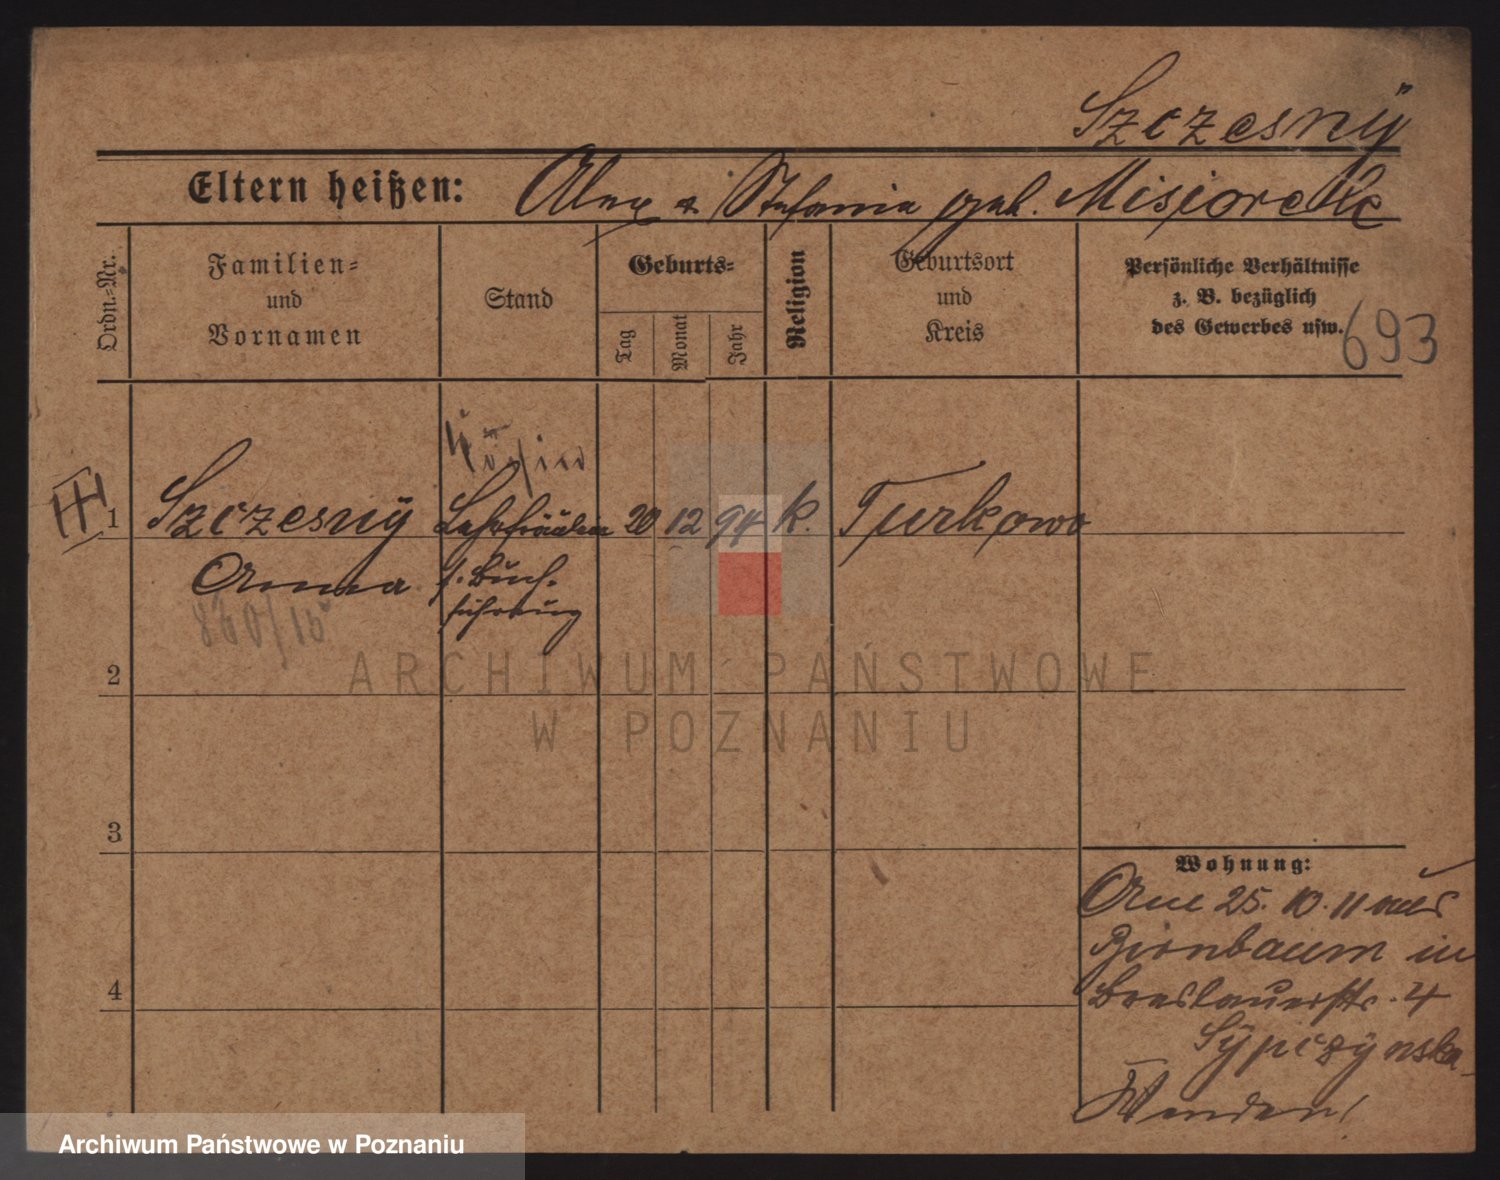 Szczesnÿ
Eltern heißen: Alex & Stefania geb. Misiorek
Ordn.-Nr.
Familien-
und
Vornamen
Stand
Geburts-
Tag
Monat
Jahr
Religion
Geburtsort
und
Kreis
Persönliche Verhältnisse
z. B. bezüglich
des Gewerbes usw.
693
1 Szczesnÿ Lehrfräulein 20 12 94 k. Turkowo
Anna f. Buch-
führung
2
3
4
Wohnung:
25. 10. 11 aus
Birnbaum in
Breslauerstr. 4
Sÿpczÿnska
ARCHIWUM PAŃSTWOWE
W POZNANIU
Archiwum Państwowe w Poznaniu